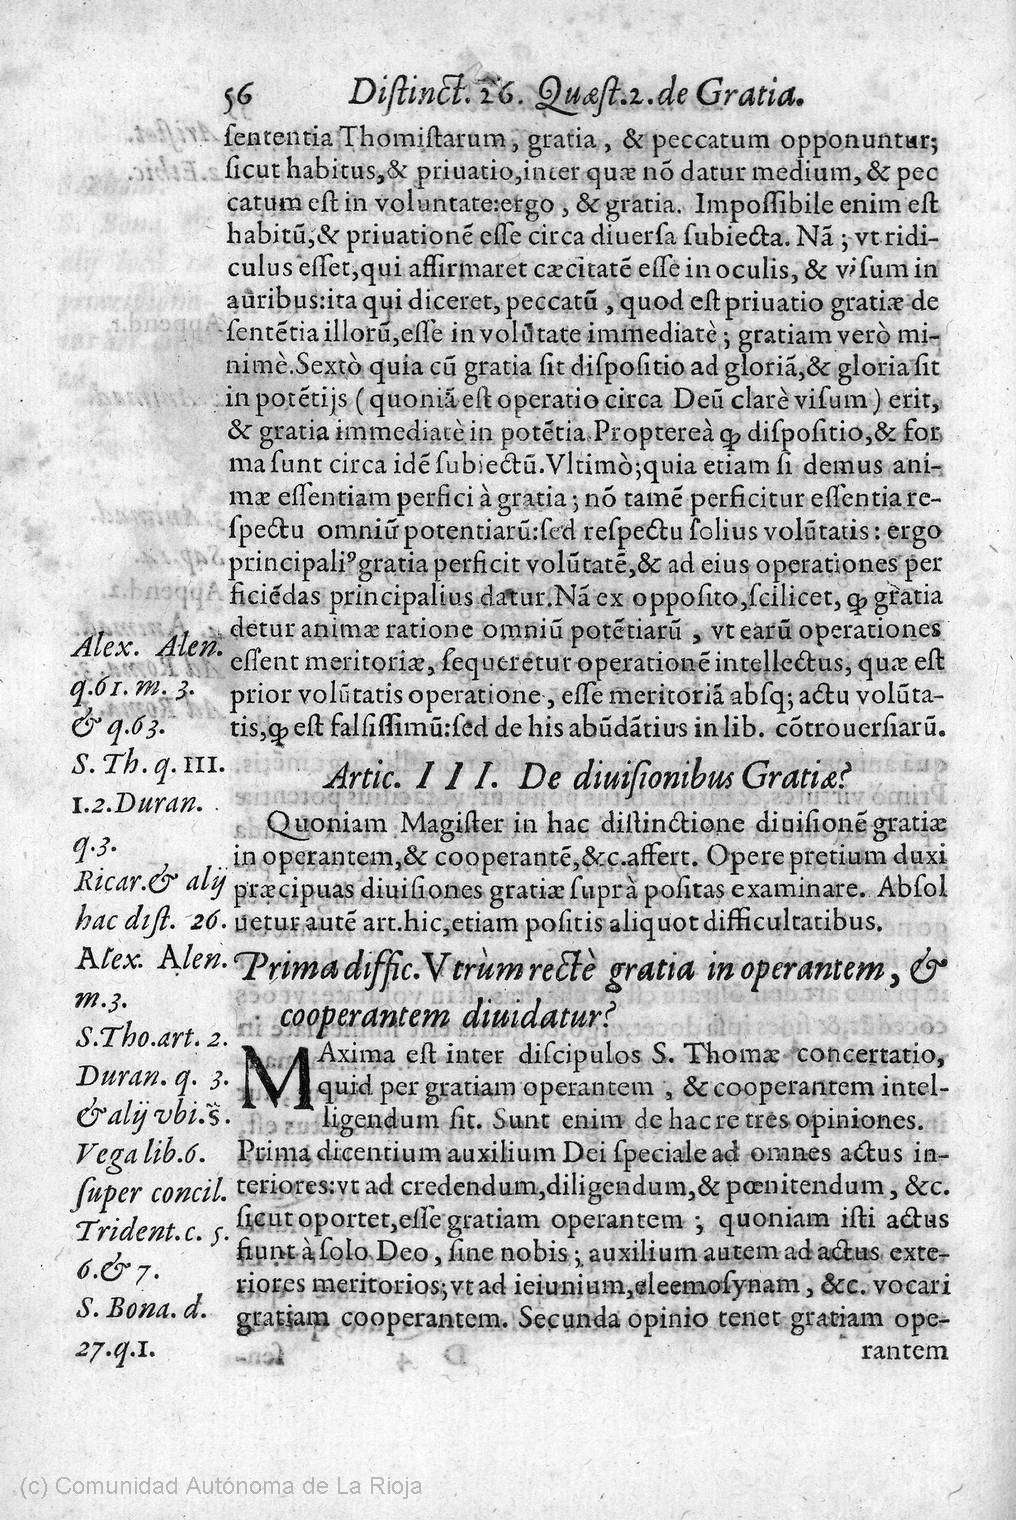 56 Distinct. 26. Quæst.2. de Gratia.
sententia Thomistarum, gratia, & peccatum opponuntur;
sicut habitus,& priuatio,inter quæ nõ datur medium, & pec
catum est in voluntate:ergo, & gratia. Impossibile enim est
habitũ,& priuationẽ esse circa diuersa subiecta. Nã ; vt ridi-
culus esset,qui affirmaret cæcitatẽ esse in oculis, & visum in
auribus:ita qui diceret, peccatũ, quod est priuatio gratiæ de
sentẽtia illorũ,esse in volũtate immediatè; gratiam verò mi-
nimè.Sextò quia cũ gratia sit dispositio ad gloriã,& gloria sit
in potẽtijs (quoniã est operatio circa Deũ clarè visum) erit,
& gratia immediatè in potẽtia.Proptereà ꝙ dispositio,& for
ma sunt circa idẽ subiectũ.Vltimò;quia etiam si demus ani-
mæ essentiam perfici à gratia; nõ tamẽ perficitur essentia re-
spectu omniũ potentiarũ:sed respectu solius volũtatis: ergo
principaliꝰ gratia perficit volũtatẽ,& ad eius operationes per
ficiẽdas principalius datur.Nã ex opposito,scilicet, ꝙ gratia
detur animæ ratione omniũ potẽtiarũ, vt earũ operationes
essent meritoriæ, sequeretur operationẽ intellectus, quæ est
prior volũtatis operatione, esse meritoriã absq; actu volũta-
tis,ꝙ est falsissimũ:sed de his abũdãtius in lib. cõtrouersiarũ.
Artic. III. De diuisionibus Gratiæ?
Quoniam Magister in hac distinctione diuisionẽ gratiæ
in operantem,& cooperantẽ,&c.affert. Opere pretium duxi
præcipuas diuisiones gratiæ suprà positas examinare. Absol
uetur autẽ art.hic,etiam positis aliquot difficultatibus.
Prima diffic.Vtrùm rectè gratia in operantem, &
cooperantem diuidatur?
MAxima est inter discipulos S. Thomæ concertatio,
quid per gratiam operantem, & cooperantem intel-
ligendum sit. Sunt enim de hac re tres opiniones.
Prima dicentium auxilium Dei speciale ad omnes actus in-
teriores:vt ad credendum,diligendum,& pœnitendum, &c.
sicut oportet,esse gratiam operantem; quoniam isti actus
fiunt à solo Deo, sine nobis; auxilium autem ad actus exte-
riores meritorios;vt ad ieiunium,eleemosynam, &c. vocari
gratiam cooperantem. Secunda opinio tenet gratiam ope-
rantem
Alex. Alen.
q.61. m. 3.
& q.63.
S. Th. q. 111.
1.2.Duran.
q.3.
Ricar.& alij
hac dist. 26.
Alex. Alen.
m.3.
S.Tho.art. 2.
Duran. q. 3.
& alij vbi.s̃.
Vega lib.6.
super concil.
Trident.c. 5.
6.& 7.
S. Bona. d.
27.q.1.
(c) Comunidad Autónoma de La Rioja